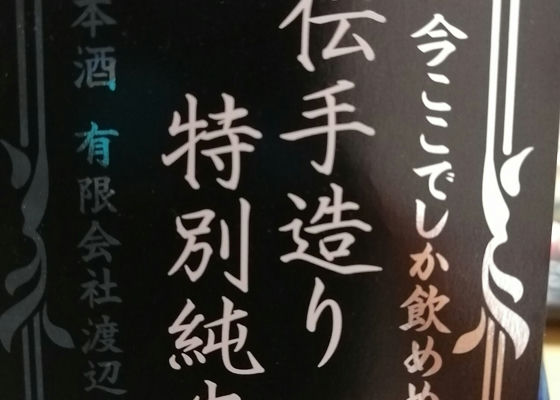 今ここでしか飲めめ
伝手造り
特別純
本酒 有限会社渡辺